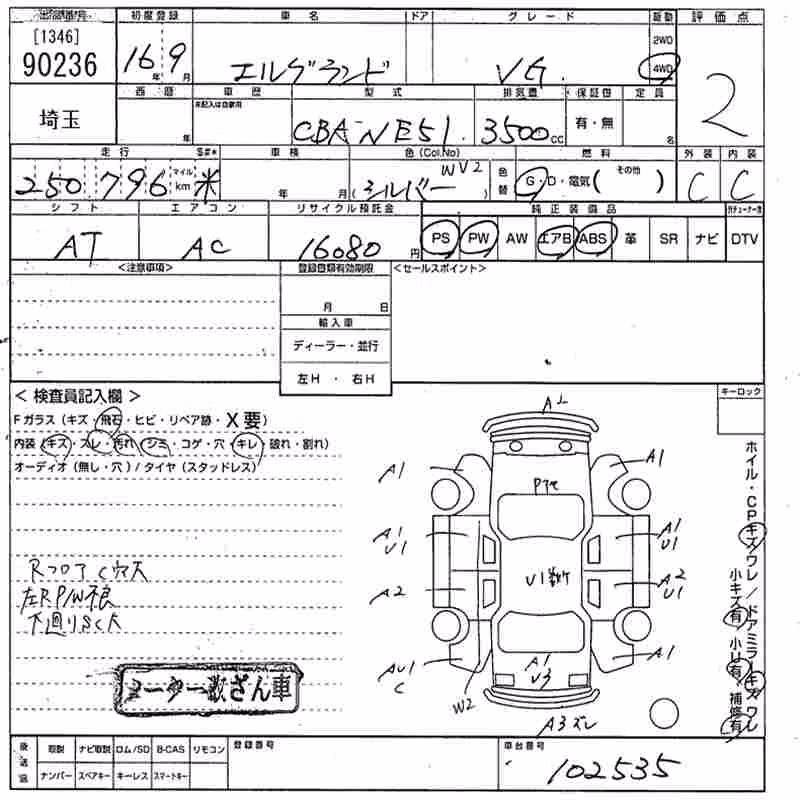 出品番号 初度登録 車名 ドア グレード 駆動 評価点
[1346]
90236 16年 9月 エルグランド VG. 2WD 4WD 2
埼玉 西暦 年 車歴 型式 排気量 保証書 定員
未記入は自家用
CBA-NE51 3500cc 有・無 名
走行 S#* 車検 色(Col,No) 燃料 外装 内装
250796 マイル km 米 年 月 (シルバー WV2) 色替 G・D・電気( その他 ) C C
シフト エアコン リサイクル預託金 純正装備品
AT AC 16080円 PS PW AW エアB ABS 革 SR ナビ DTV
<注意事項> 登録書類有効期限 <セールスポイント>
月 日
輸入車
ディーラー・並行
左H ・ 右H
<検査員記入欄> キーロック
Fガラス(キズ・飛石・ヒビ・リペア跡・X要)
内装(キズ・スレ・汚れ・シミ・コゲ・穴・キレ・破れ・割れ)
オーディオ(無し・穴)/タイヤ(スタッドレス)
RフロアC穴大
左RP/W不良
下回りSC大
メーター改ざん車
A1 A1
Pアセ
A1 U1 A1 U1
A2 U1 A2 U1
AU1 C A1 V3 A1
W2
A3ズレ
ホイル・CPキズワレ/ドアミラーキズワレ
小キズ有 小U有 補修有
後送品 取説 ナビ取説 ロム/SD B-CAS リモコン 登録番号 車台番号
ナンバー スペアキー キーレス スマートキー 102535